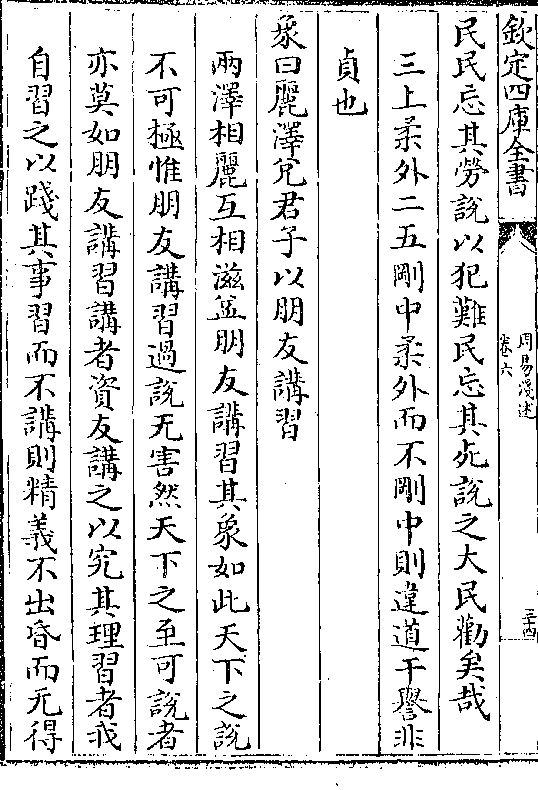 欽定四庫全書
周易淺述
卷六
三十四
民民忘其勞說以犯難民忘其死說之大民勸矣哉
三上柔外二五剛中柔外而不剛中則違道干譽非
貞也
象曰麗澤兌君子以朋友講習
兩澤相麗互相滋益朋友講習其象如此天下之說
不可極惟朋友講習過說无害然天下之至可說者
亦莫如朋友講習講者資友講之以究其理習者我
自習之以踐其事習而不講則精義不出昏而无得